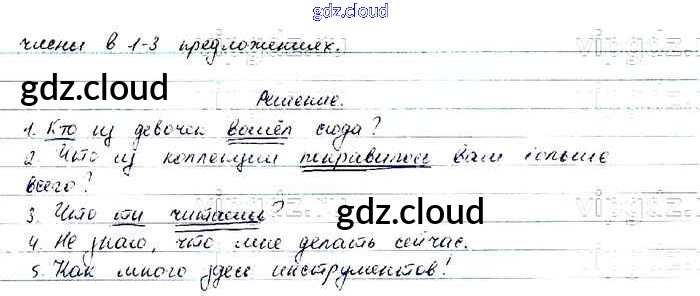 gdz.cloud
члены в 1-3 предложениях.
vipgdz.com
gdz.cloud
Решение.
1. Кто из девочек вошёл сюда?
2. Что из коллекции понравилось вам больше
всего?
3. Что ты читаешь?
gdz.cloud
4. Не знаю, что мне делать сейчас.
5. Как много здесь инструментов!